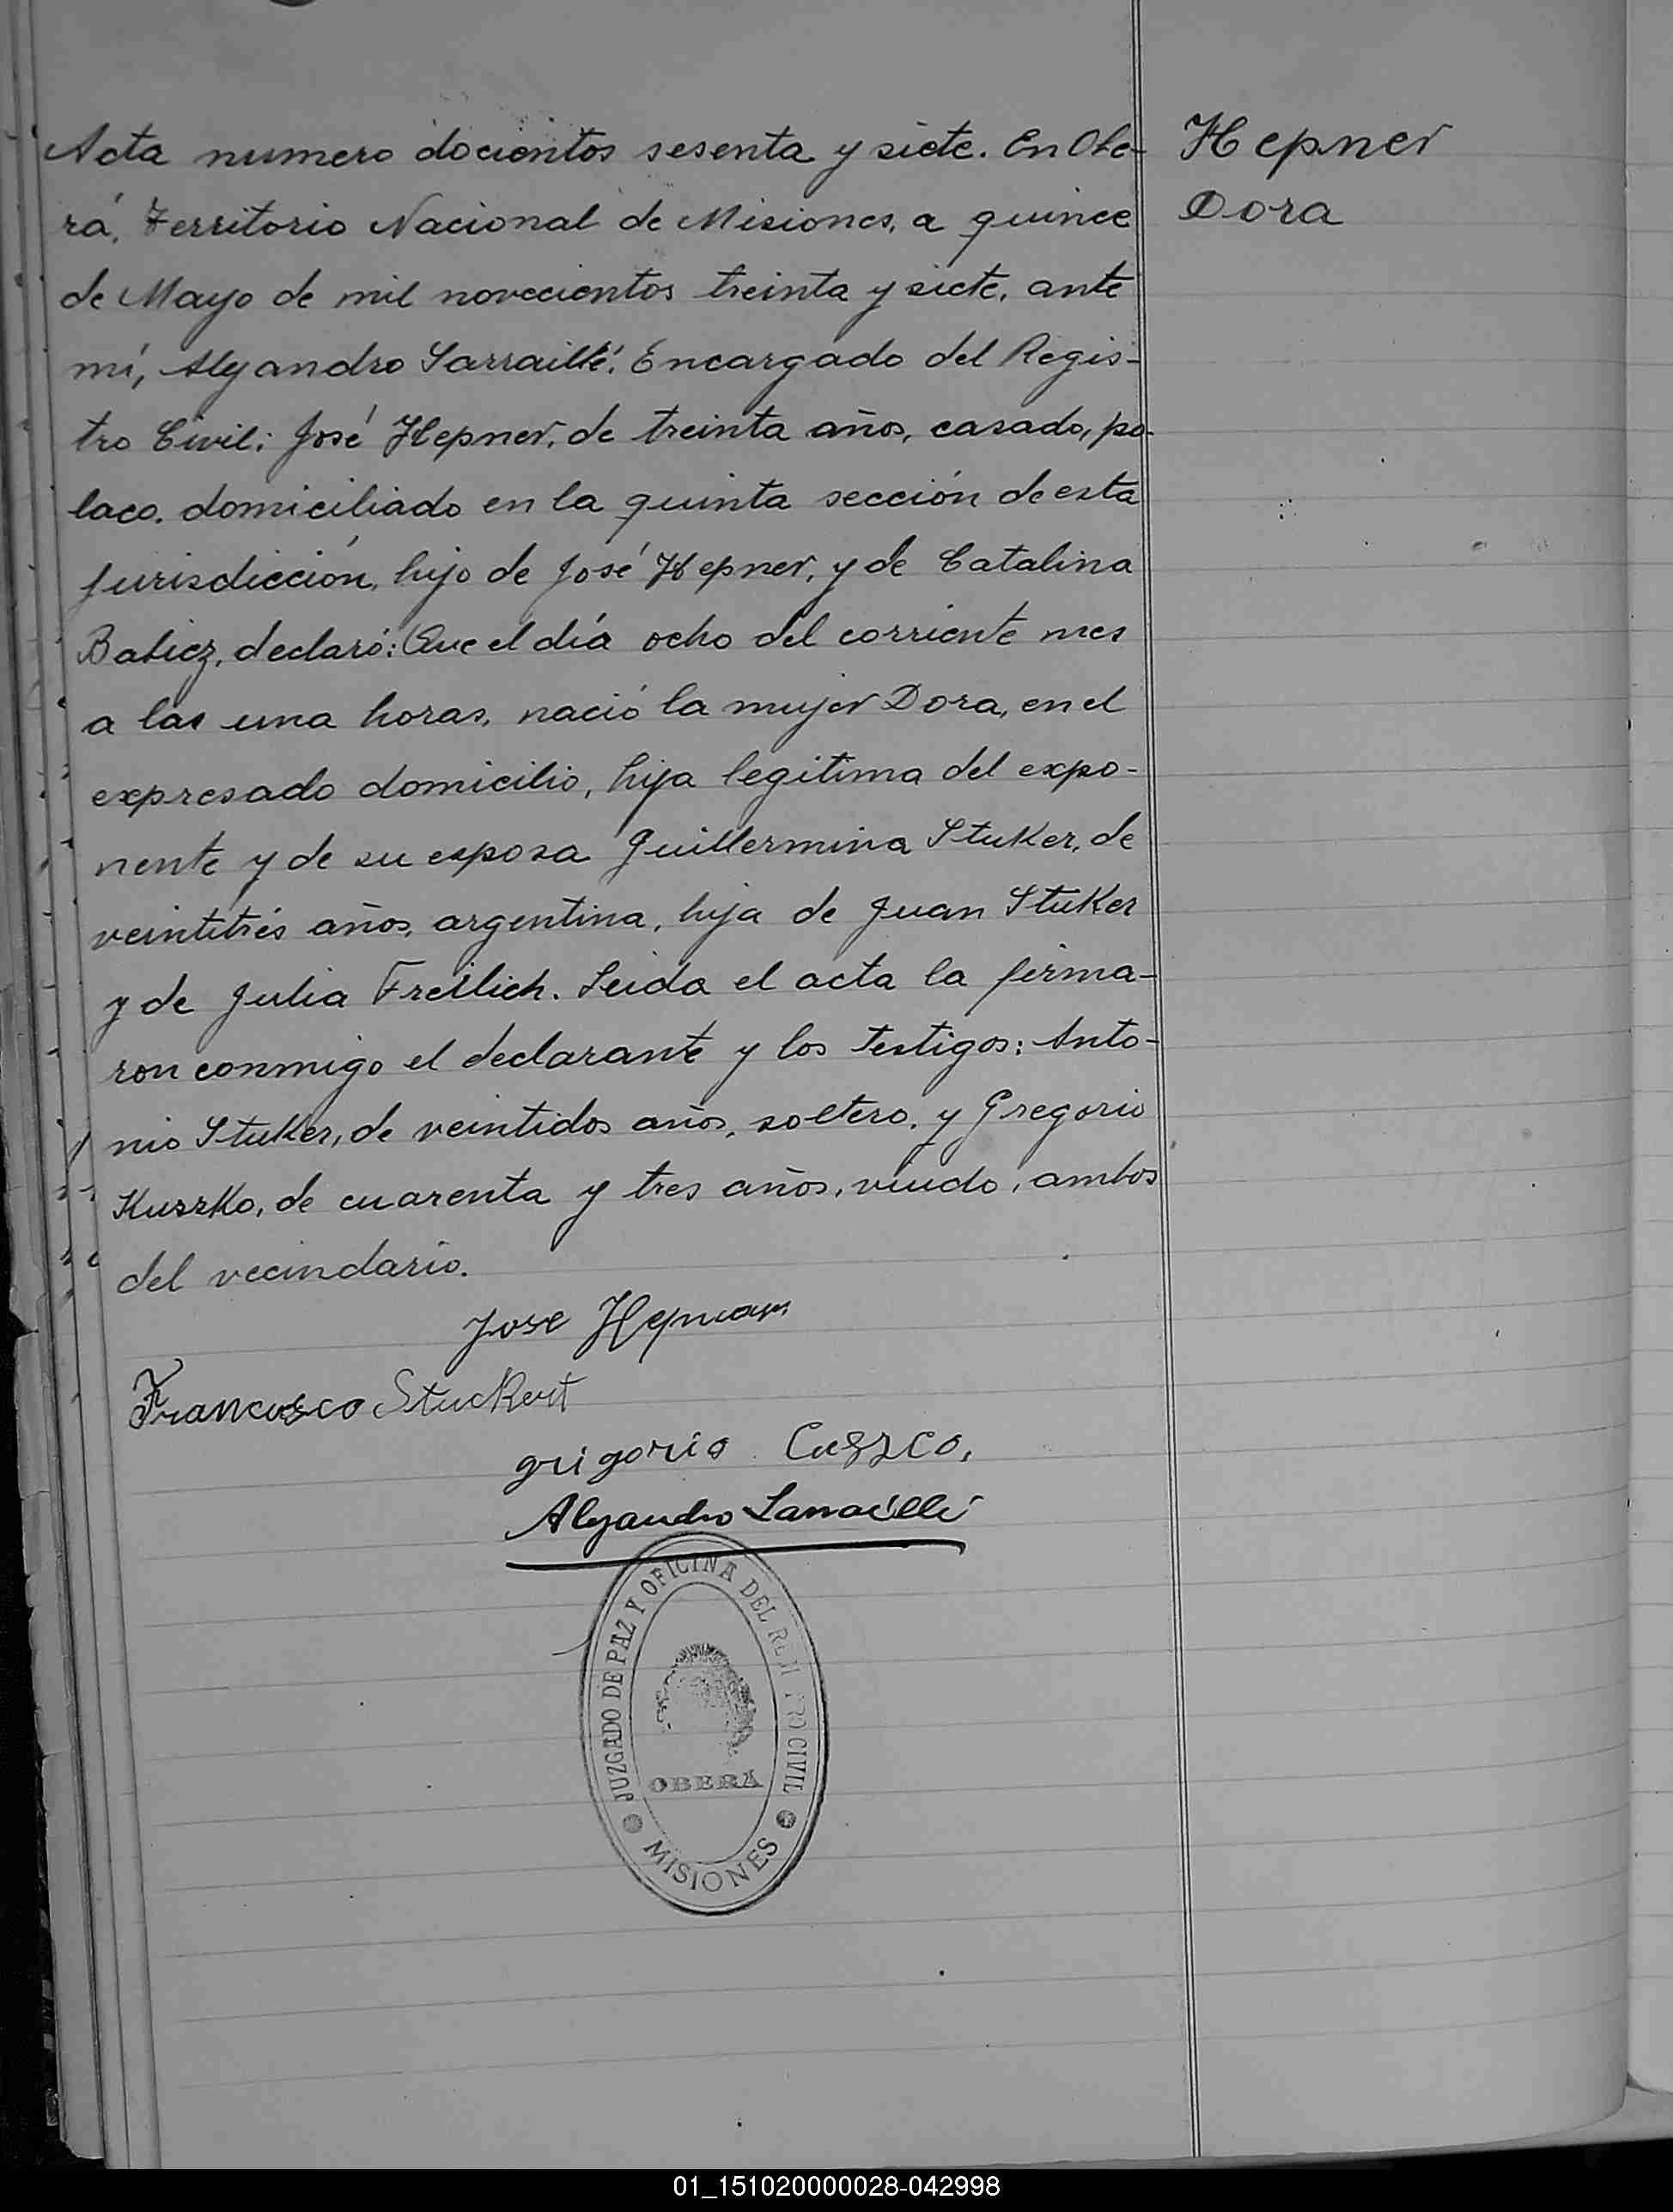 Acta numero docientos sesenta y siete. En Obe-
rá, Territorio Nacional de Misiones, a quince
de Mayo de mil novecientos treinta y siete, ante
mí, Alejandro Sarraillé, Encargado del Regis-
tro Civil; José Hepner, de treinta años, casado, po-
laco, domiciliado en la quinta sección de esta
jurisdicción, hijo de José Hepner, y de Catalina
Babicz, declaró: Que el día ocho del corriente mes
a las una horas, nació la mujer Dora, en el
expresado domicilio, hija legitima del expo-
nente y de su esposa Guillermina Stuker, de
veintitrés años, argentina, hija de Juan Stuker
y de Julia Freilich. Leida el acta la firma-
ron conmigo el declarante y los testigos: Anto-
nio Stuker, de veintidos años, soltero, y Gregorio
Kuszko, de cuarenta y tres años, viudo, ambos
del vecindario.
Hepner
Dora
Jose
Francisco Stuckert
grigorio Cuszco,
Alejandro Sarraillé
JUZGADO DE PAZ Y OFICINA DEL CIVIL
OBERA
MISIONES
01_151020000028-042998